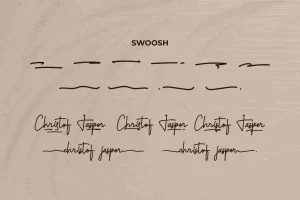 SWOOSH
Christof Jasper Christof Jasper Christof Jasper
christof jasper christof jasper